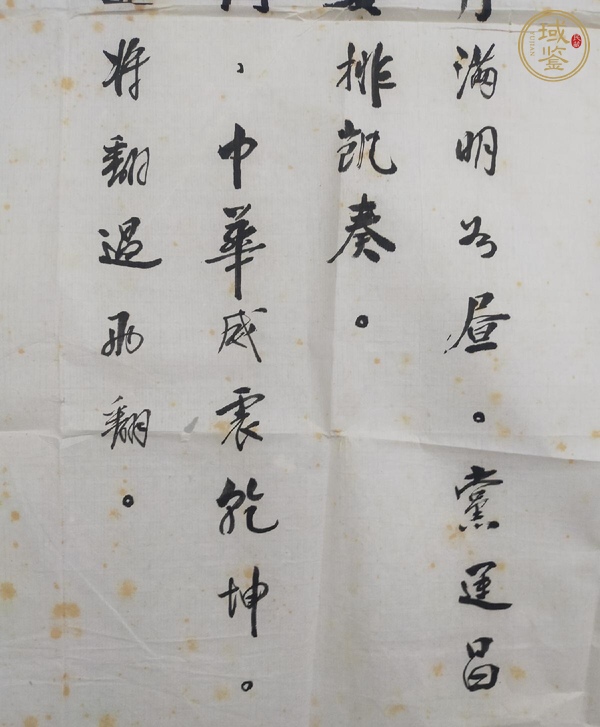 满明如昼。黨運昌
排凯奏。
、中華威震乾坤。
将翻過再翻。
域鉴
YUJIAN